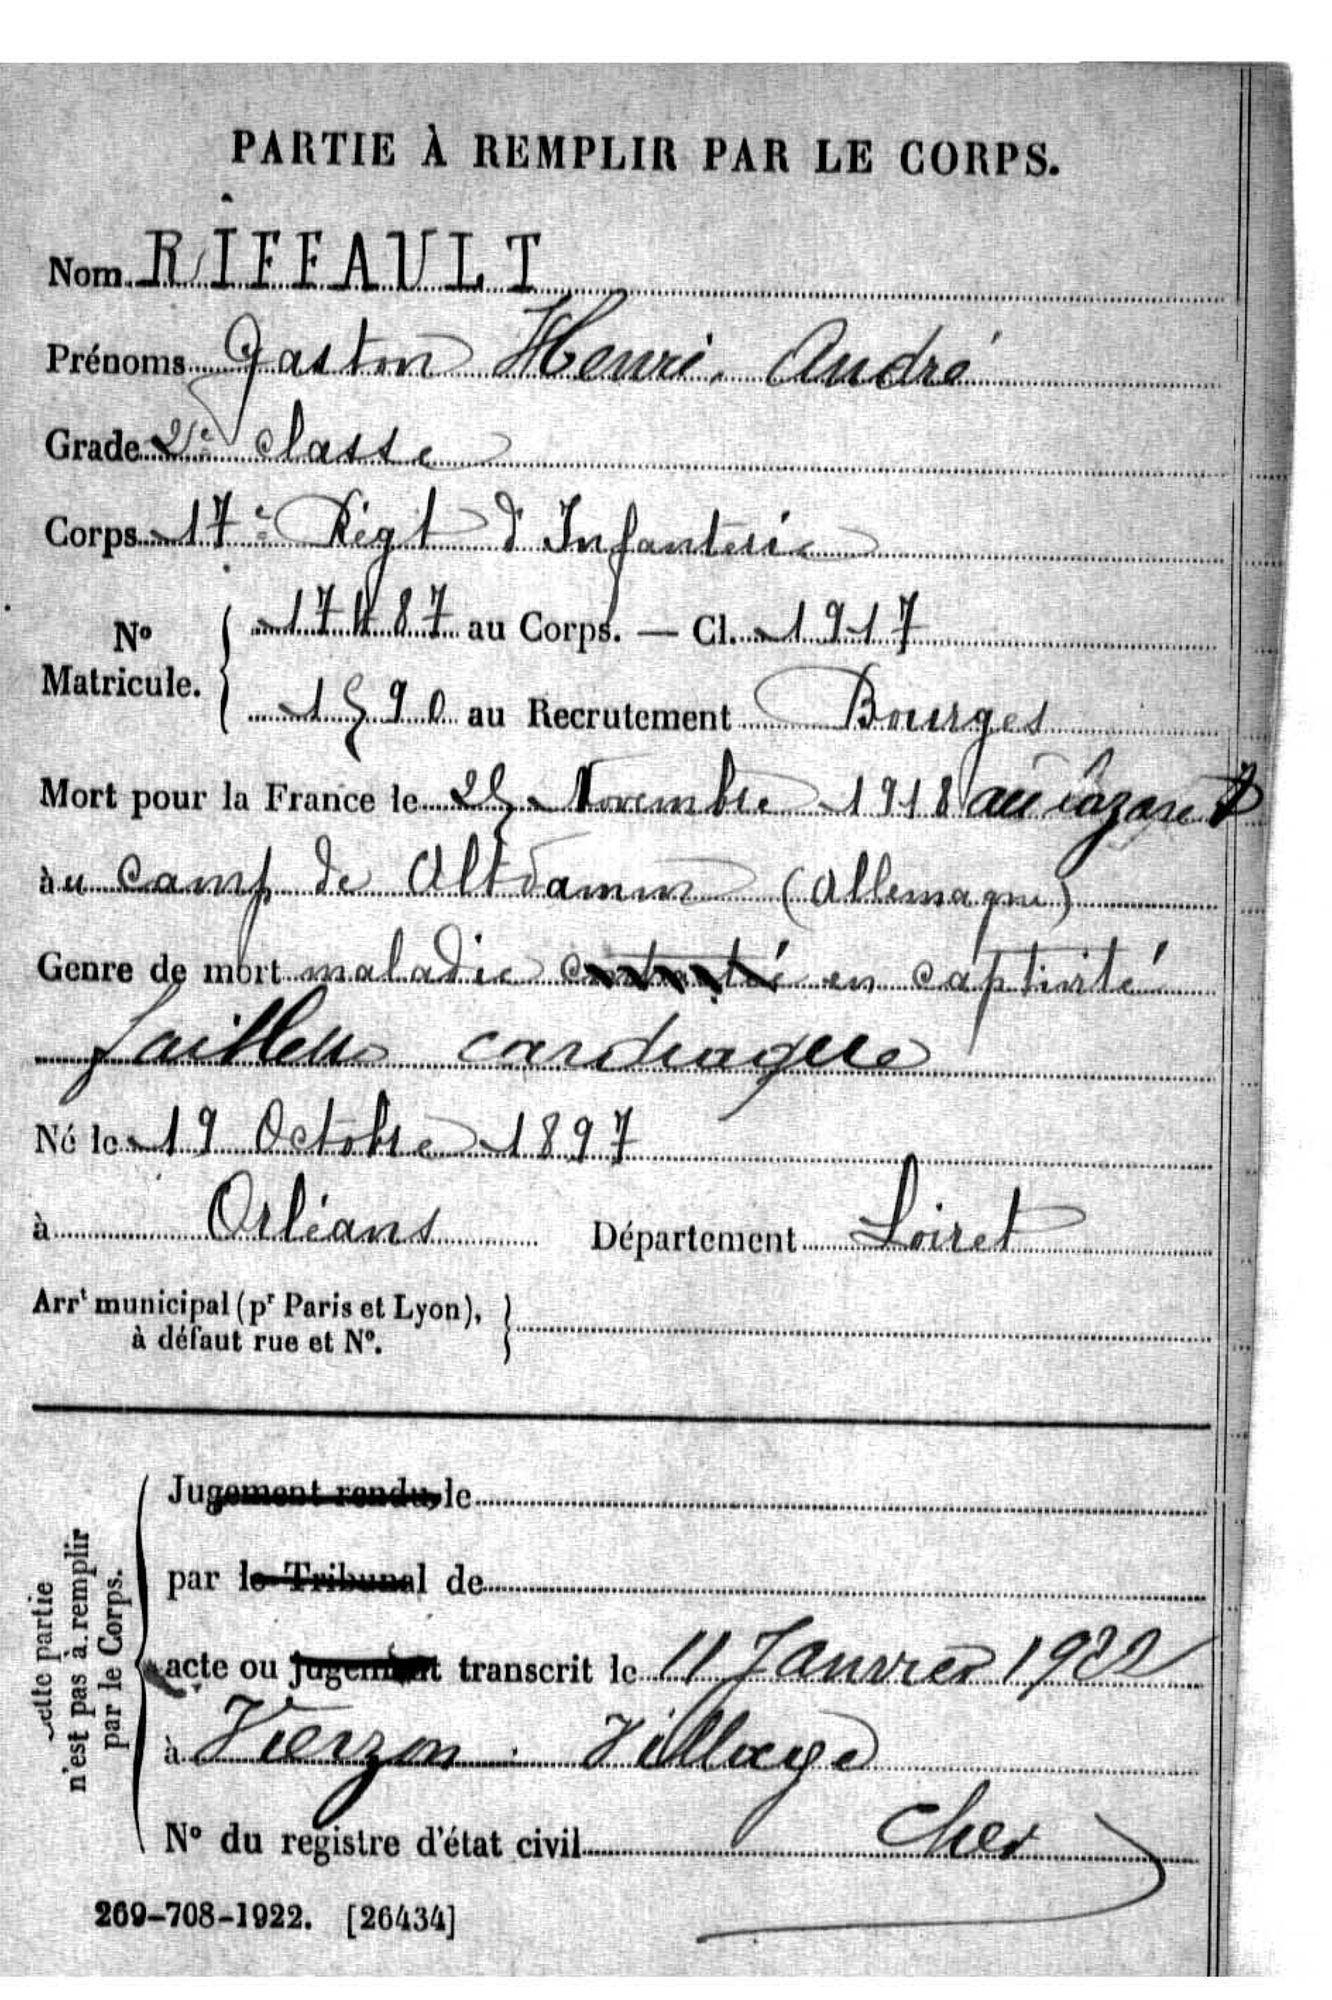 PARTIE À REMPLIR PAR LE CORPS.
Nom RIFFAULT
Prénoms Gaston Henri André
Grade 2e classe
Corps 17e Régt d'Infanterie
No Matricule. 17487 au Corps. — Cl. 1917
1590 au Recrutement Bourges
Mort pour la France le 25 Novembre 1918 au lazaret
àu camp de Altdamm (Allemagne)
Genre de mort maladie contractée en captivité
faiblesse cardiaque
Né le 19 Octobre 1897
à Orléans Département Loiret
Arrt municipal (pr Paris et Lyon),
à défaut rue et No.
Cette partie
n'est pas à remplir
par le Corps.
Jugement rendu le
par le Tribunal de
acte ou jugement transcrit le 11 Janvier 1922
à Vierzon Village
No du registre d'état civil Cher
269-708-1922. [26434]